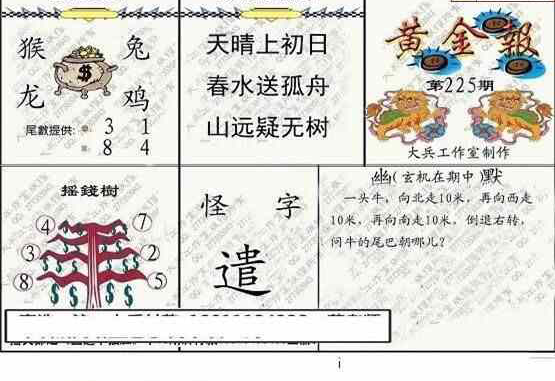 猴 兔
龙 鸡
尾數提供: 3 1
8 4
天晴上初日
春水送孤舟
山远疑无树
黄金報
第225期
大兵工作室制作
摇錢樹
4 7
3 2
8 5
怪 字
遣
幽(玄机在期中 默
一头牛，向北走10米，再向西走
10米，再向南走10米，倒退右转，
问牛的尾巴朝哪儿？